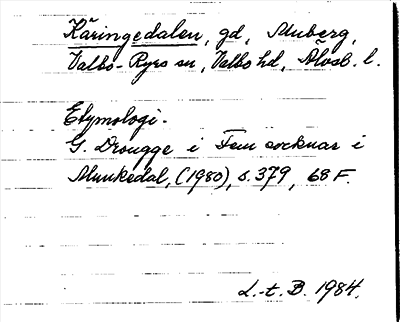 Käringedalen, gd, Muberg,
Valbo-Ryrs sn, Valbo hd, Älvsb. l.
Etymologi.
G. Drougge i Fem socknar i
Munkedal, (1980), s. 379, 68 F.
L.-t. B. 1984.